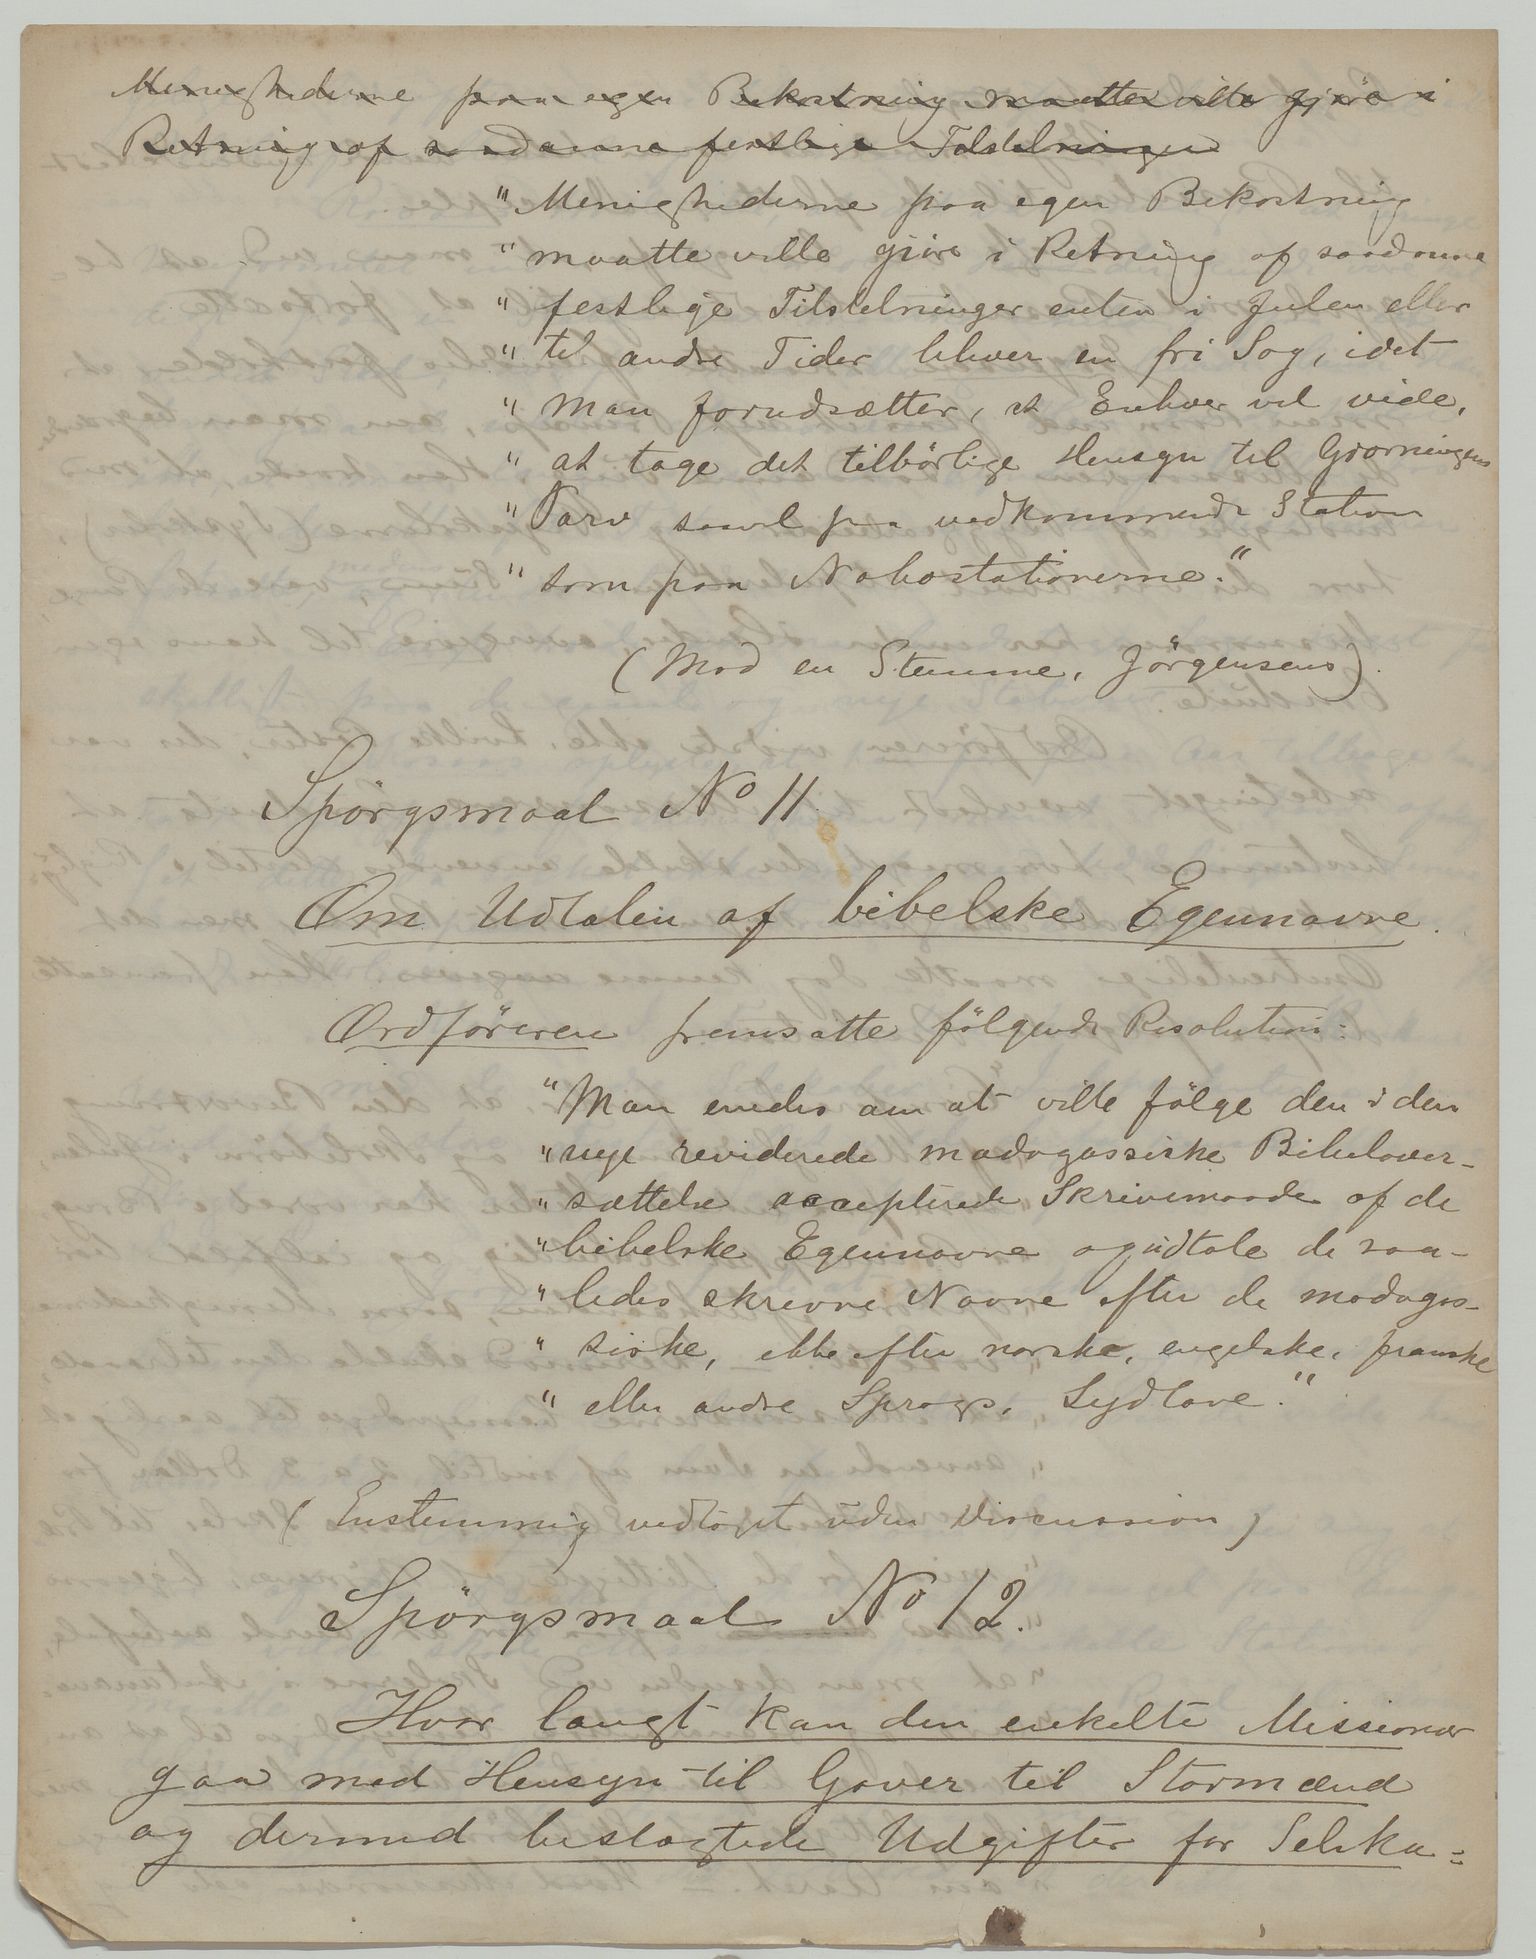 Menighederne paa egen Bekostning maatte ville gjöre i
Retning af saadanne festlige Tilstelninger
"Menighederne paa egen Bekostning
"maatte ville gjöre i Retning af saadanne
"festlige Tilstelninger enten i Julen eller
"til andre Tider bliver en fri Sag, idet
"man forudsætter, at Enhver vil vide,
"at tage det tilbörlige Hensyn til Gjerningens
"Tarv saavel paa vedkommende Station
"som paa Nabostationerne."
(Mod en Stemme, Jörgensens).
Spörgsmaal No 11.
Om Udtalen af bibelske Egennavne.
Ordföreren fremsatte fölgende Resolution:
"Man enedes om at ville fölge den i den
"nye reviderede madagassiske Bibelover-
"sættelse accepterede Skrivemaade af de
"bibelske Egennavne og udtale de saa-
"ledes skrevne Navne efter de madagas-
"siske, ikke efter norske, engelske, franske
"eller andre Sprogs, Lydlove."
(Enstemmig vedtaget uden Discussion)
Spörgsmaal No 12.
Hvor langt kan den enkelte Missionær
gaa med Hensyn til Gaver til Stormænd
og dermed beslægtede Udgifter for Selska-